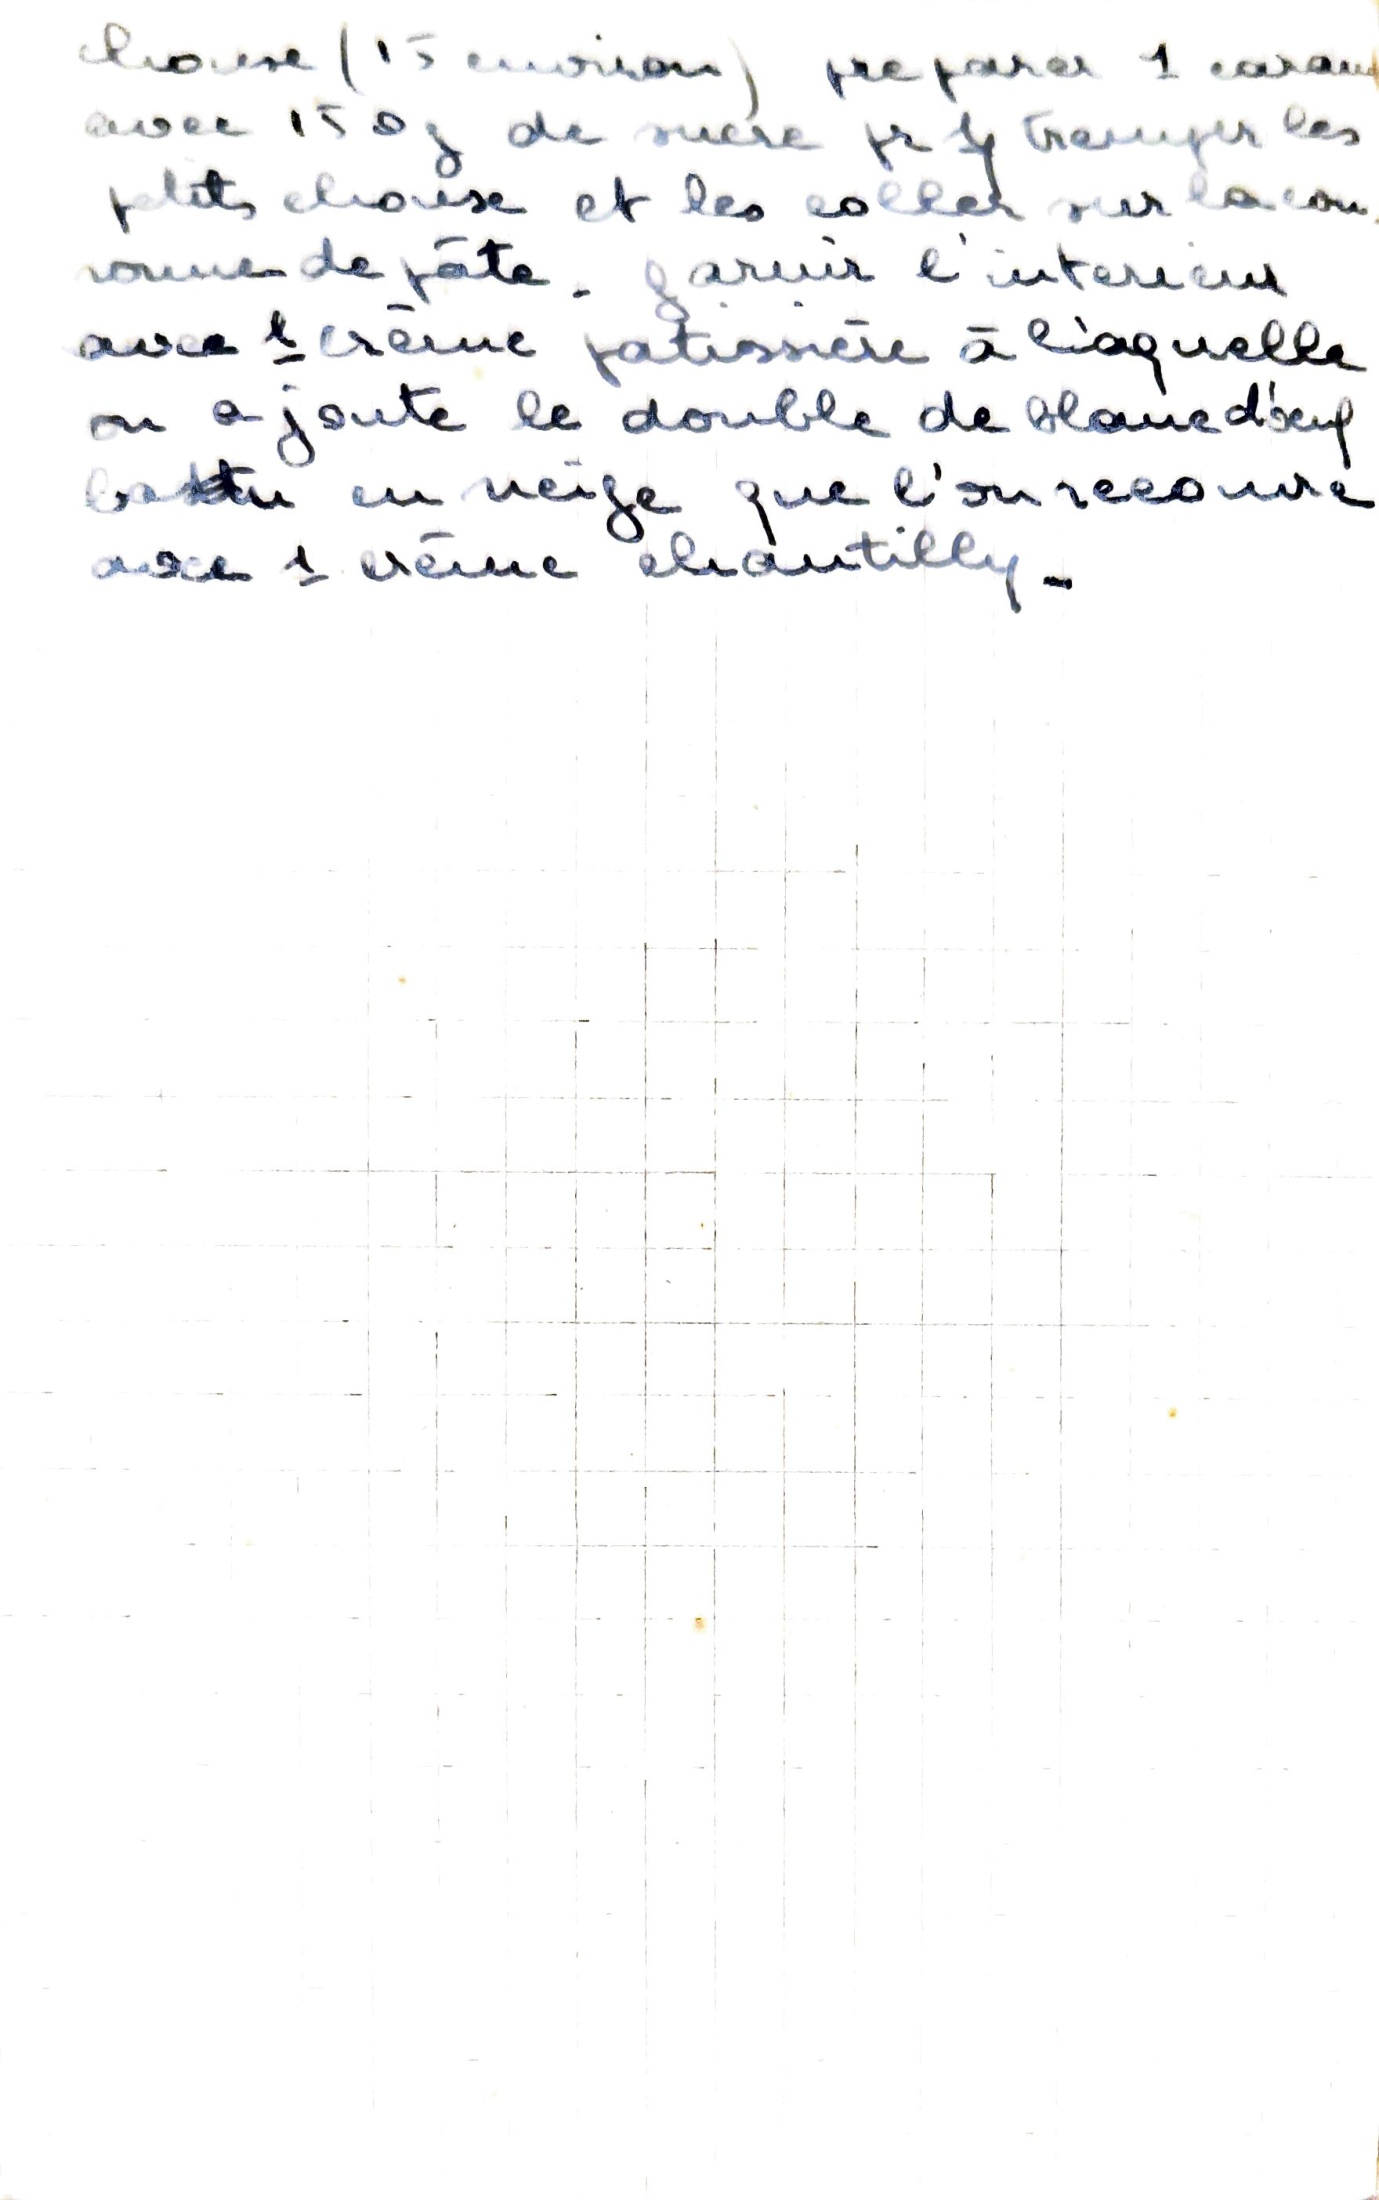 choux (15 environ) preparer 1 caram
avec 150g de sucre pr y tremper les
petits choux et les coller sur la cou.
ronne de pâte. garnir l'interieur
avec 1 crême patissière à laquelle
on ajoute le double de blanc d'oeuf
battu en neige que l'on recouvre
avec 1 crême chantilly.